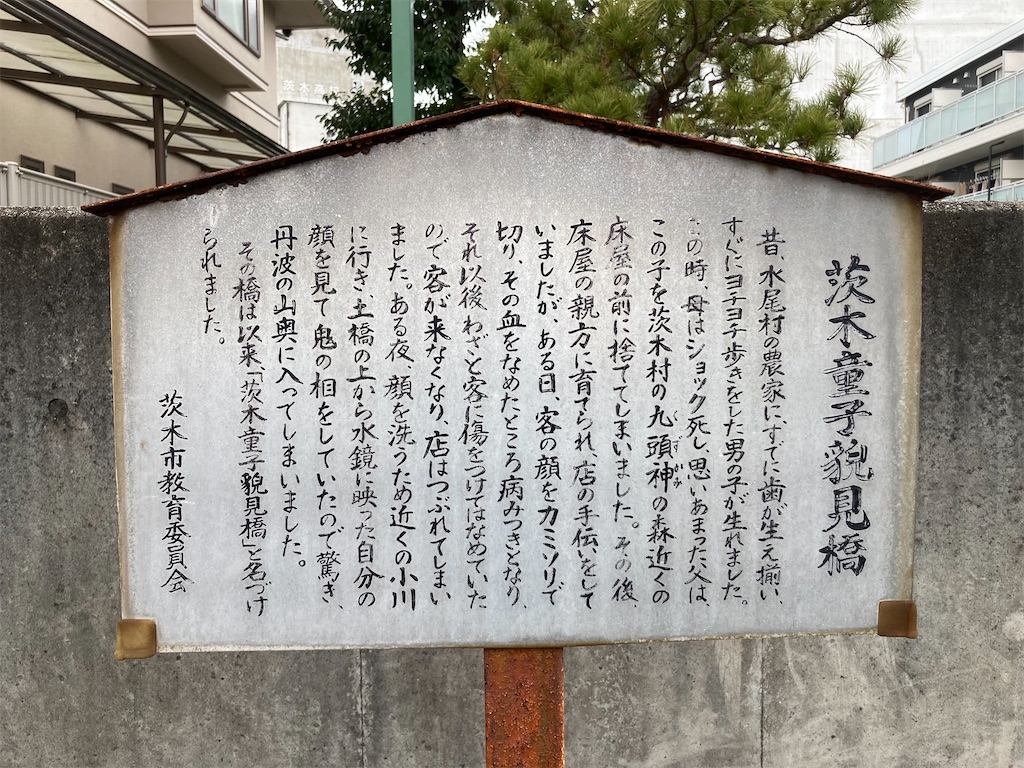 茨木童子貌見橋
昔、水尾村の農家に、すでに歯が生え揃い、
すぐにヨチヨチ歩きをした男の子が生れました。
この時、母はショック死し、思いあまった父は、
この子を茨木村の九頭神の森近くの
くずがみ
床屋の前に捨ててしまいました。その後、
床屋の親方に育てられ、店の手伝いをして
いましたが、ある日、客の顔をカミソリで
切り、その血をなめたところ病みつきとなり、
それ以後わざと客に傷をつけてはなめていた
ので客が来なくなり、店はつぶれてしまい
ました。ある夜、顔を洗うため近くの小川
に行き、土橋の上から水鏡に映った自分の
顔を見て鬼の相をしていたので驚き、
丹波の山奥に入ってしまいました。
その橋は以来、「茨木童子貌見橋」と名づけ
られました。
茨木市教育委員会